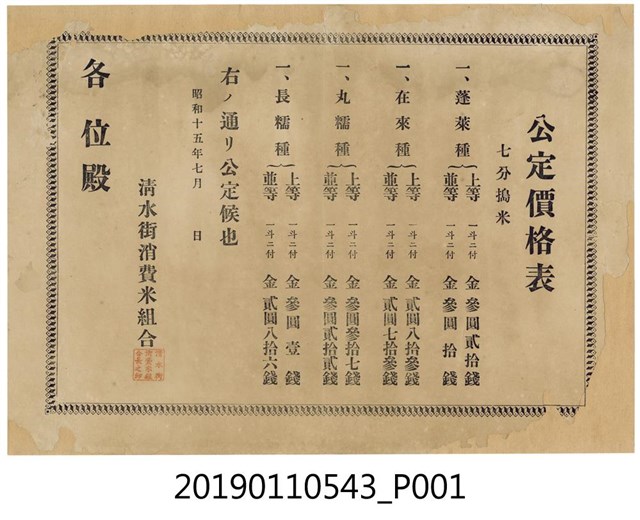 公定價格表
七分搗米
一、蓬萊種
上等 一斗ニ付 金參圓貳拾錢
並等 一斗ニ付 金參圓拾錢
一、在來種
上等 一斗ニ付 金貳圓八拾參錢
並等 一斗ニ付 金貳圓七拾參錢
一、丸糯種
上等 一斗ニ付 金參圓參拾七錢
並等 一斗ニ付 金參圓貳拾貳錢
一、長糯種
上等 一斗ニ付 金參圓壹錢
並等 一斗ニ付 金貳圓八拾六錢
右ノ通リ公定候也
昭和十五年七月 日
清水街消費米組合
各位殿
20190110543_P001